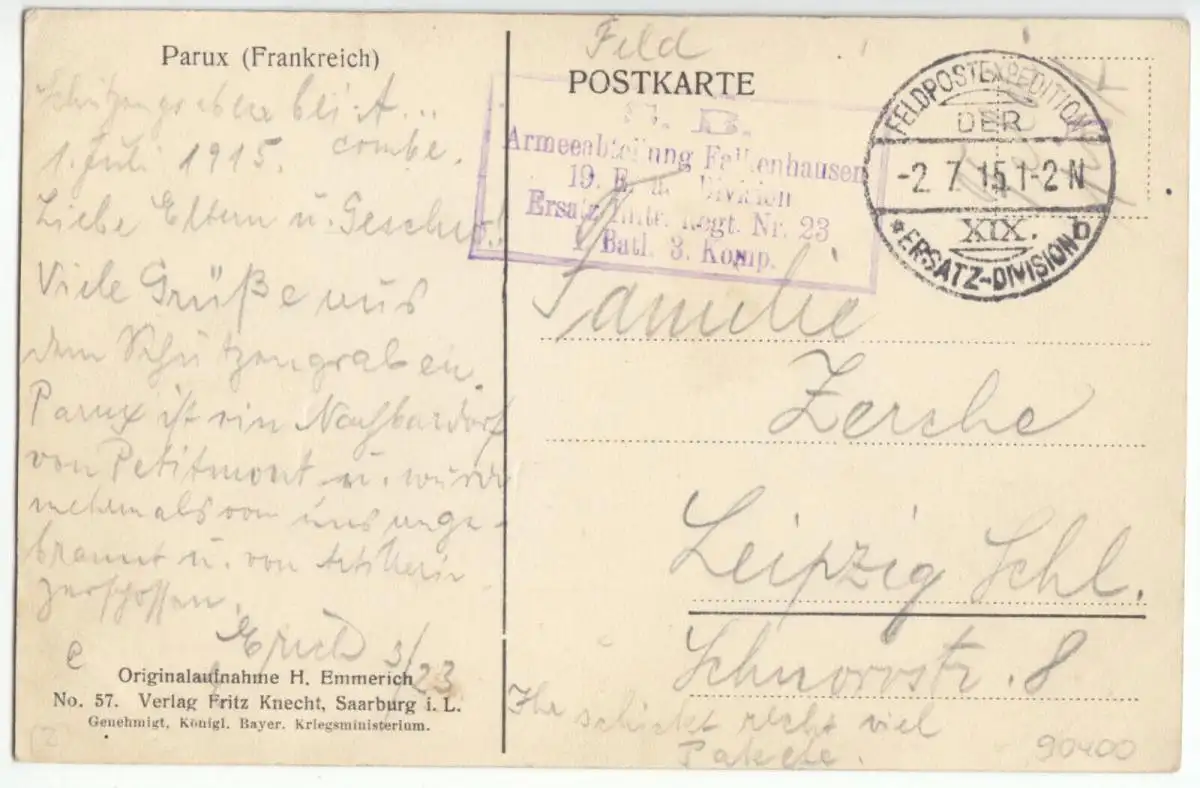 Parux (Frankreich)
Schützengraben bei A...
combe.
1. Juli 1915.
Liebe Eltern u. Geschw.!
Viele Grüße aus
dem Schützengraben.
Parux ist ein Nachbardorf
von Petitmont u. wurde
mehrmals von uns ange-
brannt u. von Artillerie
zerschossen.
Erich 3/23
Originalaufnahme H. Emmerich
No. 57. Verlag Fritz Knecht, Saarburg i. L.
Genehmigt, Königl. Bayer. Kriegsministerium.
Feld
POSTKARTE
S. B.
Armeeabteilung Falkenhausen
19. Ersatz Division
Ersatz Inftr. Regt. Nr. 23
Batl. 3. Komp.
FELDPOSTEXPEDITION
DER
-2.7.15.1-2N
XIX. b
*ERSATZ-DIVISION
Familie
Zerche
Leipzig Schl.
Schnorrstr. 8
Ihr schickt recht viel
Pakete.
90400